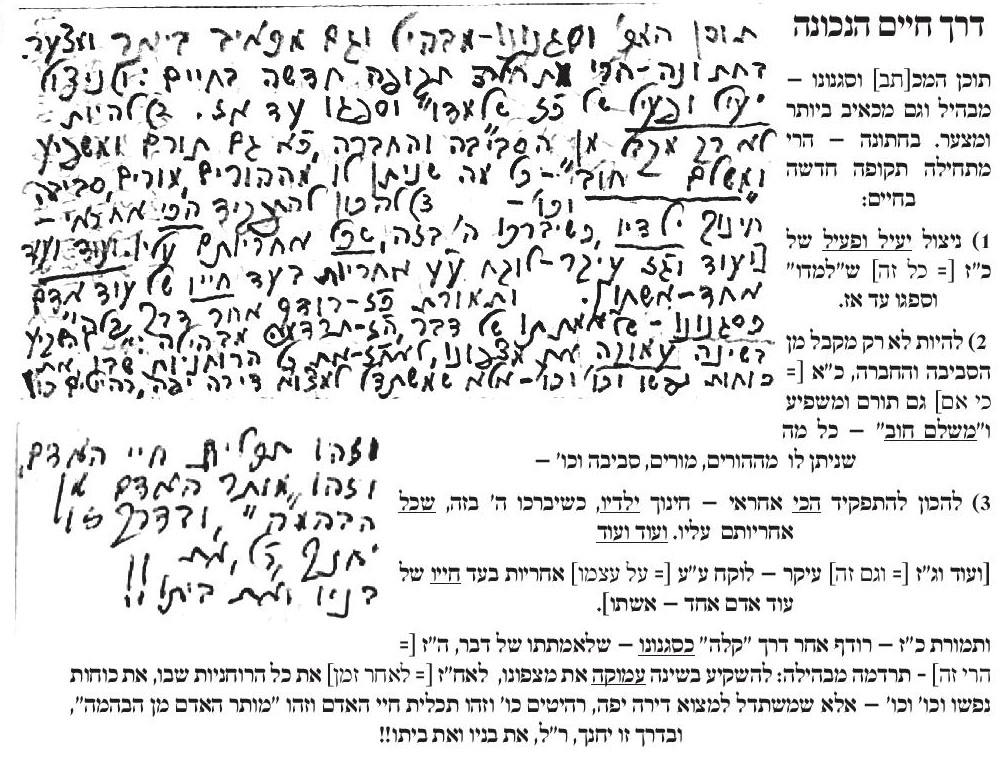 דרך חיים הנכונה
תוכן המכ[תב] וסגנונו –
מבהיל וגם מכאיב ביותר
ומצער. בחתונה – הרי
מתחילה תקופה חדשה
בחיים:
1) ניצול יעיל ופעיל של
כ"ז [= כל זה] ש"למדו"
וספגו עד אז.
2) להיות לא רק מקבל מן
הסביבה והחברה, כ"א [=
כי אם] גם תורם ומשפיע
ו"משלם חוב" – כל מה
שניתן לו מההורים, מורים, סביבה וכו' –
3) להכון להתפקיד הכי אחראי – חינוך ילדיו, כשיברכו ה' בזה, שכל
אחריותם עליו. ועוד ועוד
[ועוד וג"ז [= וגם זה] עיקר – לוקח ע"ע [= על עצמו] אחריות בעד חייו של
עוד אדם אחד – אשתו].
ותמורת כ"ז – רודף אחר דרך "קלה" כסגנונו – שלאמתתו של דבר, ה"ז [=
הרי זה] - תרדמה מבהילה: להשקיע בשינה עמוקה את מצפונו, לאח"ז [= לאחר זמן] את כל הרוחניות שבו, את כוחות
נפשו וכו' וכו' – אלא שמשתדל למצוא דירה יפה, רהיטים כו' וזהו תכלית חיי האדם וזהו "מותר האדם מן הבהמה",
ובדרך זו יחנך, ר"ל, את בניו ואת ביתו!!
תוכן המכ' וסגנונו-מבהיל וגם מכאיב ביותר ומצער.
בחתונה-הרי מתחילה תקופה חדשה בחיים: 1)ניצול
יעיל ופעיל של כ"ז שלמדו" וספגו עד אז. 2)להיות
לא רק מקבל מן הסביבה והחברה, כ"א גם תורם ומשפיע
ו"משלם חוב" - כל מה שניתן לו מההורים, מורים, סביבה
וכו' - 3)להכון להתפקיד הכי אחראי -
חינוך ילדיו, כשיברכו ה' בזה, שכל אחריותם עליו. ועוד ועוד
[ועוד וג"ז עיקר-לוקח ע"ע אחריות בעד חייו של עוד אדם
אחד-אשתו]. ותמורת כ"ז-רודף אחר דרך "קלה"
כסגנונו - שלאמתתו של דבר, ה"ז-תרדמה מבהילה: להשקיע
בשינה עמוקה את מצפונו, לאח"ז-את כל הרוחניות שבו, את
כוחות נפשו וכו' וכו'-אלא שמשתדל למצוא דירה יפה, רהיטים כו'
וזהו תכלית חיי האדם,
וזהו "מותר האדם מן
הבהמה", ובדרך זו
יחנך, ר"ל, את
בניו ואת ביתו!!